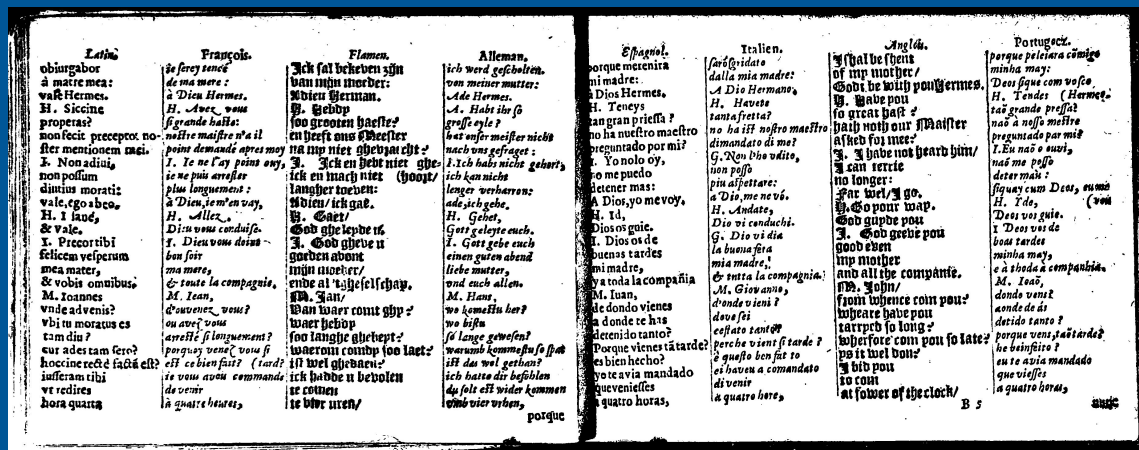 Latin.
obiurgabor
à matre mea:
vale Hermes.
H. Siccine
properas?
non fecit preceptor no-
ster mentionem mei.
I. Non adiui,
non possum
diutius morari:
vale, ego abeo.
H. I laue,
& vale.
I. Precor tibi
felicem vesperum
mea mater,
& vobis omnibus.
M. Ioannes
vnde advenis?
vbi tu moratus es
tam diu ?
cur ades tam sero?
hoccine recte factū est?
iusseram tibi
vt redires
hora quarta
François.
ie serey tencé
de ma mere :
à Dieu Hermes.
H. Avez vous
si grande haste:
nostre maistre n'a il
point demandé apres moy
I. Ie ne l'ay point ouy,
ie ne puis arrester
plus longuement :
à Dieu, ie m'en vay,
H. Allez,
Dieu vous conduise.
I. Dieu vous doint
bon soir
ma mere,
& toute la compagnie.
M. Iean,
d'ou venez vous?
ou avez vous
arresté si longuement?
porquoy venez vous si
est ce bien fait? (tard?
ie vous avou commande
de venir
à quatre heures,
Flamen.
Ick sal bekeven zijn
van mijn moeder:
Adieu Herman.
H. Hebdy
soo grooten haeste?
en heeft ons Meester
na my niet ghevraecht?
I. Ick en hebt niet ghe-
ick en mach niet (hoort/
langher toeven:
Adieu/ ick gae.
H. Gaet/
God gheleyde u.
I. God gheve u
goeden avont
mijn moeder/
ende al 'tgheselschap.
M. Jan/
Van waer comt ghy?
waer hebdy
soo langhe ghebeyt?
waerom comdy soo laet?
ist wel ghedaen?
ick hadde u bevolen
te comen
te vier uren/
Alleman.
ich werd gescholten.
von meiner mutter:
Ade Hermes.
A. Habt ihr so
grosse eyle ?
hat onser meister nicht
nach vns gefraget :
I. Ich habs nicht gehort,
ich kan nicht
lenger verharren:
ade, ich gehe.
H. Gehet,
Gott geleyte euch.
I. Gott gebe euch
einen guten abend
liebe mutter,
vnd euch allen.
M. Hans,
wo komestu her?
wo bistu
so lange gewesen?
warumb kommestu so spat
ist das wol gethan?
ich hatte dir befohlen
du solt est wider kommen
vmb vier vrhen,
porque
Espagnol.
porque me renira
mi madre:
à Dios Hermes.
H. Teneys
tan gran priessa ?
no ha nuestro maestro
preguntado por mi?
I. Yo no lo oy,
no me puedo
detener mas:
A Dios, yo me voy.
H. Id,
Dios os guie.
I. Dios os de
buenas tardes
mi madre,
y a toda la compañia
M. Iuan,
de dondo vienes
a donde te has
detenido tanto?
Porque vienes tā tarde?
es bien hecho?
yo te avia mandado
que veniesses
a quatro horas,
Italien.
sarò sgridato
dalla mia madre:
A Dio Hermano,
H. Havete
tanta fretta?
no ha ist nostro maestro
dimandato di me?
G. Non l'ho vdito,
non posso
piu aspettare:
a Dio, me ne vò.
H. Andate,
Dio vi conduchi.
G. Dio vi dia
la buona sera
mia madre,
& tutta la compagnia.
M. Giovanni,
d'onde vieni ?
dove sei
cessato tanto?
perche vieni si tarde ?
è questo ben fat to
ei haveu a comandato
di venir
a quatro hore,
Anglois.
I shal be shent
of my mother/
God be with you Hermes.
H. Have you
so great hast ?
hath noth our Maister
asked for mee?
I. I have not heard him/
I can terrie
no longer:
Far wel/ I go.
H. Go your way.
God guyde you
I. God geeve you
good even
my mother
and all the companie.
M. John/
from whence com you?
wheare have you
tarryed so long?
wherfore com you so late?
ys it wel don?
I bid you
to com
at fower of the clock/
B 5
Portugoez.
porque peleiara cõmigo
minha may:
Deos fique com vosco
H. Tendes (Hermes.
taō grande pressa?
naō à nosso mestre
preguntado por mi?
I. Eu naō o ouvi,
naō me posso
deter mais :
fiquay cum Deos, eu me
H. Yde, (vou
Deos vos guie.
I Deos vos de
boas tardes
minha may,
e à thoda à companhia.
M. Ioaō,
donde vens?
aonde ás
detido tanto ?
porque vens, taō tarde?
he beinfeito ?
eu te avia mandado
que viesses
a quatro horas,